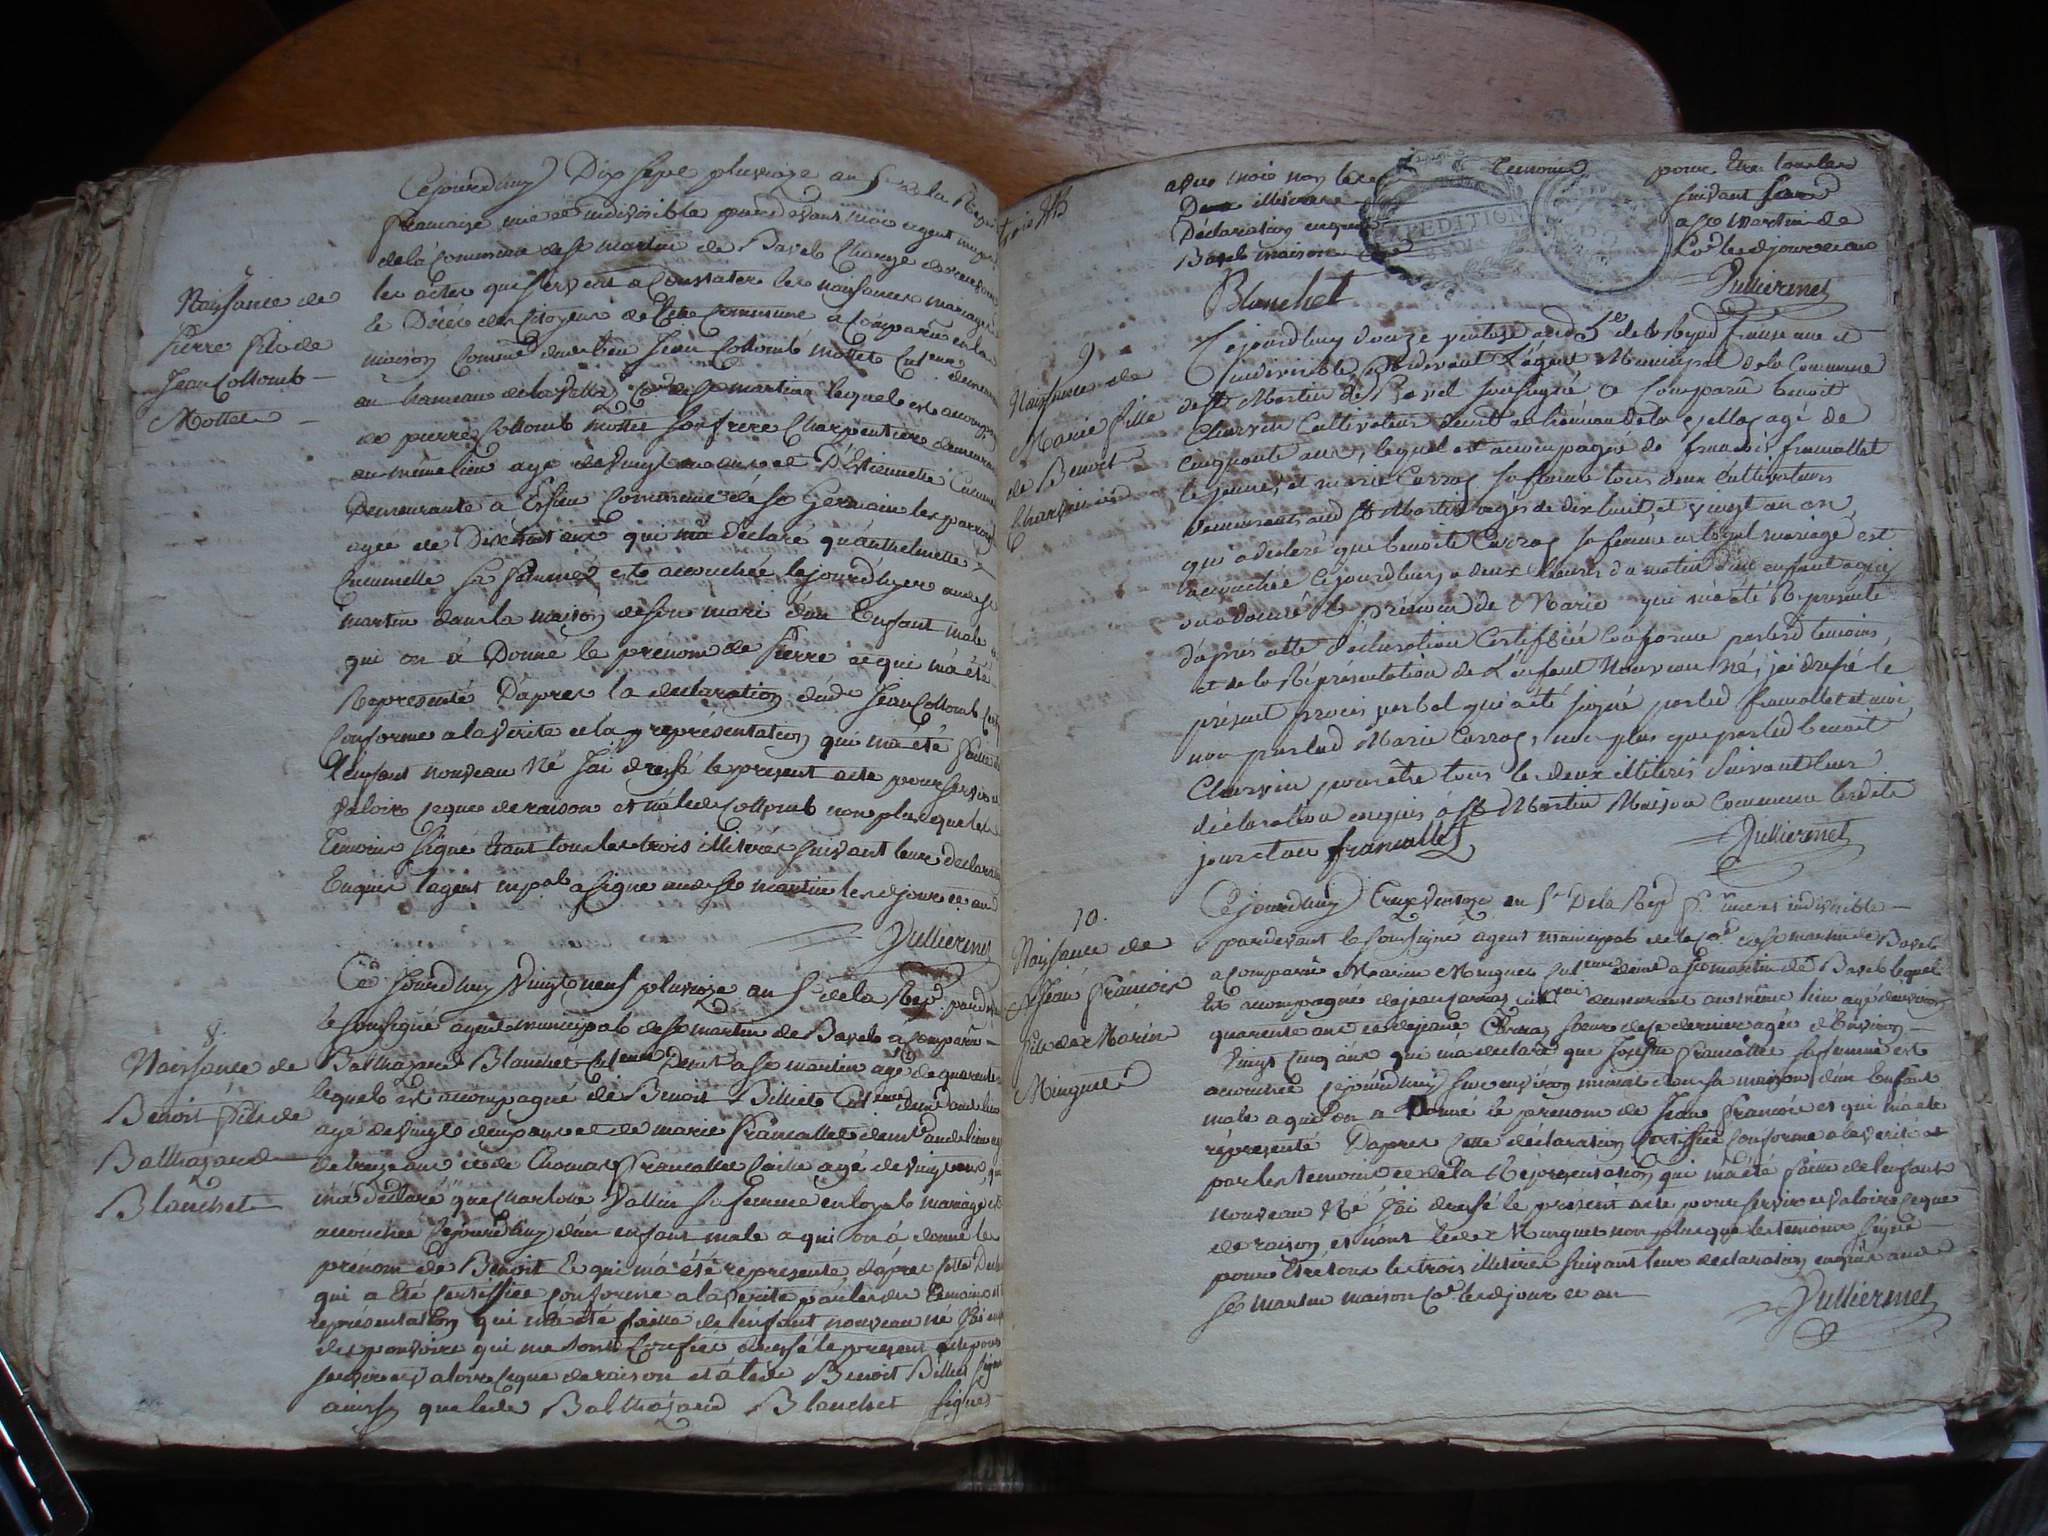 Cejourdhuy Dix sept pluviose an 5e de la Rep
francaise une et indivisible pardevant moi agent munpal
de la Commune de st martin de Bavel Charge de recevoir
les actes qui servent a Constater les naissances mariages
7
Naissance de
Pierre fils de
Jean Collomb
Mottet
et Déces des Citoyens de Cette Commune a Comparu en la
maison Commune dudit lieu Jean Collomb Mottet demeurant
au hameau de la Vella Cne de st martin lequel est accompagné
de pierre Collomb mottet son frere Charpentier demeurant
au même lieu agé de vingt ans et D'Etiennette
Demeurante à Essieu Commune de st Germain les parroisses
agée de Dix huit ans qui m'a Declaré qu'anthelmette
sa femme est accouchée Cejourdhyer audt st
martin dans la maison de son mari d'un Enfant male a
qui on à Donné le prénom de Pierre et qui m'a été
Representé D'apres la declaration dudt Jean Collomb
Conforme a la Verité et la représentation qui m'a été faitte de
l'enfant nouveau Né J'ai dressé le present acte pour servir et
valoir ceque de raison et n'a ledt Collomb non plus que les
Temoins signé Etant tous les trois illitérés suivant leur declaration
Enquis l'agent mpal a signé audt st martin lesd jour et an
Julliermet
8
Naissance de
Benoit fils de
Balthazard
Blanchet
Ced Jourdhuy Vingt neuf pluviose an 5e de la Rep pardevant
le soussigné agent municipal de st martin de Bavel a Comparu
Balthazard Blanchet demt a st martin agé de quarente
lequel est acompagné de Benoit Billiet demt audt lieu
agé de vingt deux ans et de marie francallet demt audt lieu
de treize ans et de Thomas francallet agé de vingt ans qui
m'a Déclaré que Charlotte Vallin sa femme en loyal mariage est
accouchée Cejourdhuy d'un enfant male a qui on à donné le
prénom de Benoit Et qui m'a été representé d'apres Cette Decl
qui a Eté Certiffiée Conforme a la Verité par lesdts Temoins et
représentation qui m'a été faitte de l'enfant nouveau né J'ai
des pouvoirs qui me sont Confiés dressé le present acte pour
servir et valoir ceque de raison et a ledt Benoit Billiet signé
ainsy que ledt Balthazard Blanchet signés
avec moi non les temoins pour Etre tous les
Deux illiterés suivant leur
Déclaration enquis a st Martin de
Bavel maison Cne lesd jour et an
EXPEDITION
Blanchet Julliermet
9
Naissance de
Marie fille
de Benoit
Charvin
Cejourdhuy douze ventose an 5e de la Repub francaise une et
indivisible pardevant L'agent Municipal de la Commune
de St Martin de Bavel soussigné a Comparu benoit
Charvin Cultivateur demt au hameau de la vella agé de
cinquante ans, lequel est accompagné de francois francallet
le jeune, et marie Carraz sa femme tous deux Cultivateurs
demeurants audt St Martin agés de dix huit, et vingt un an,
qui a declaré que benoite Carraz sa femme en loyal mariage est
accouchée Cejourdhuy a deux heures du matin d'un enfant a qui
on a donné le prénom de Marie qui m'a été Représenté
d'après cette declaration Certiffiée Conforme par lesd temoins
et de la Représentation de L'enfant Nouveau Né, j'ai dressé le
présent procès verbal qui a été signé par led francallet et moi,
non par lad Marie Carraz, non plus que par led benoit
Charvin pour être tous les deux illiterés suivant leur
déclaration enquis à St Martin Maison Commune lesdits
jour et an francallet Julliermet
10.
Naissance de
Jean francois
fils de Marin
Minguet
Cejourdhuy Treize Ventoze an 5e De la Rep fse une et indivisible
pardevant le soussigné agent municipal de la Cne de st martin de Bavel
a Comparu Marin Minguet demt a st martin de Bavel lequel
Est acompagné de jean Carraz demeurant au même lieu agé d'environ
quarente ans et de jeane Carraz soeur de ce dernier agée d'Environ
Vingt Cinq ans qui m'a declaré que Josephte francallet sa femme est
accouchée Cejourdhuy sur environ minuit dans sa maison d'un Enfant
male a qui on a Donné le prenom de Jean francois et qui m'a eté
réprésenté D'apres Cette déclaration Certiffiée Conforme a la verité
par les temoins et de la Représentation qui m'a été faitte de l'enfant
nouveau Né J'ai dressé le present acte pour servir et valoir ceque
de raison et n'ont ledt Minguet non plus que les temoins signé
pour Etre tous les trois illitérés suivant leur declaration enquis audt
st martin maison Cne lesd jour et an
Julliermet